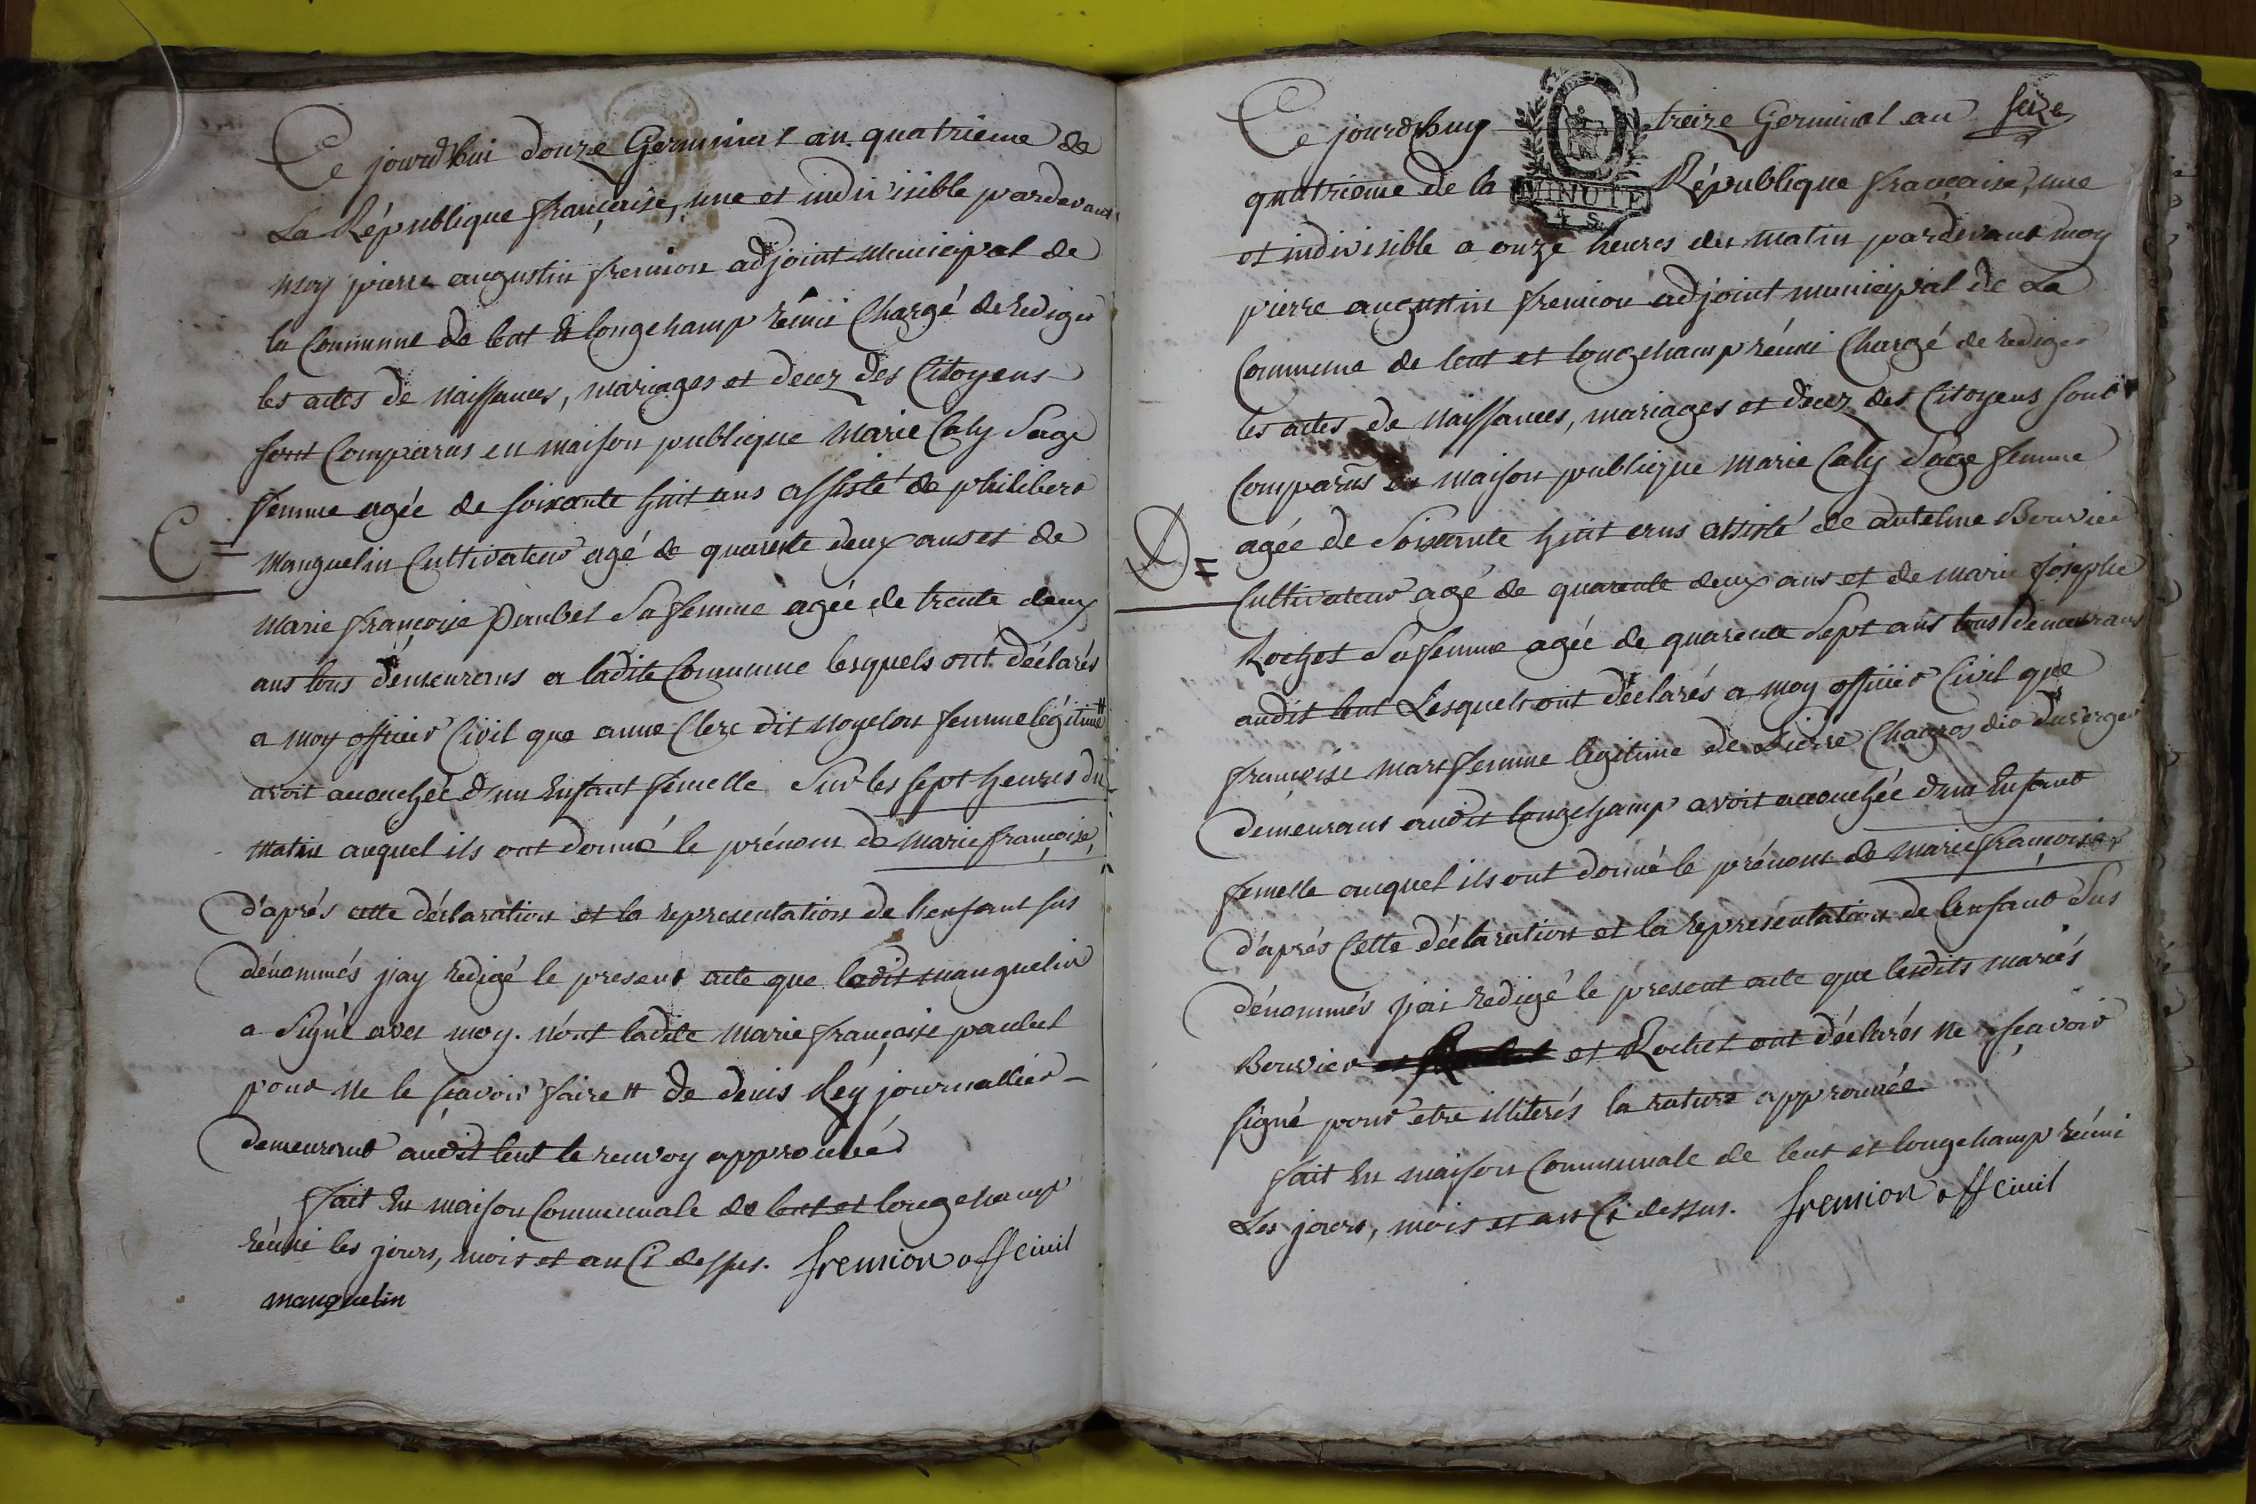 Ce jourd'hui douze Germinal an quatrieme de
La République française, une et indivisible pardevant
moy pierre augustin fremion adjoint municipal de
la Commune de lent et longchamp réuni Chargé de rediger
les actes de Naissances, mariages et decez des Citoyens
sont Comparus en maison publique marie Caly Sage
femme agée de soixante huit ans assisté de philibert
C =
manguelin Cultivateur agé de quarente deux ans et de
marie françoise paubel Sa femme agée de trente deux
ans tous demeurans a ladite Commune lesquels ont déclarés
a moy officier Civil que anne Clerc dit Noyelon femme légitime #
avoit accouchée d'un Enfant femelle Sur les sept heures du
matin auquel ils ont donné le prénom de marie françoise,
d'aprés cette déclaration et la representation de l'enfant sus
dénommés j'ay redigé le present acte que ledit manguelin
a Signé avec moy. Nont ladite marie françoise paubel
pour ne le sçavoir faire # de denis Rey journallier
demeurant audit lent le renvoy approuvé
fait En maison Communale de lent et longchamp
réuni les jours, mois et an Ci dessus. fremion off civil
manguelin
Ce jourdhuy treize Germinal an
seize
quatrieme de la République française, une
MINUTE
4 S.
et indivisible a onze heures du matin pardevant moy
pierre augustin fremion adjoint municipal de La
Commune de lent et longchamp réuni Chargé de rediger
les actes de Naissances, mariages et decez des Citoyens sont
Comparus en maison publique marie Caly Sage femme
D =
agée de Soixante huit ans assisté de antelme Bouvier
Cultivateur agé de quarente deux ans et de marie Josephe
Rochet Sa femme agée de quarente Sept ans tous demeurans
audit lent Lesquels ont déclarés a moy officier Civil que
françoise mare femme legitime de Pierre Chagros dit duverger
demeurans audit longchamp avoit accouchée d'un Enfant
femelle auquel ils ont donné le prénom de marie françoise
d'aprés Cette déclaration et la représentation de l'enfant Sus
dénommés j'ai redigé le present acte que lesdits mariés
Bouvier et Rochet ont déclarés ne sçavoir
signé pour etre illiterés la rature approuvée
fait En maison Communale de lent et longchamp réuni
Les jours, mois et an Ci dessus. fremion off civil